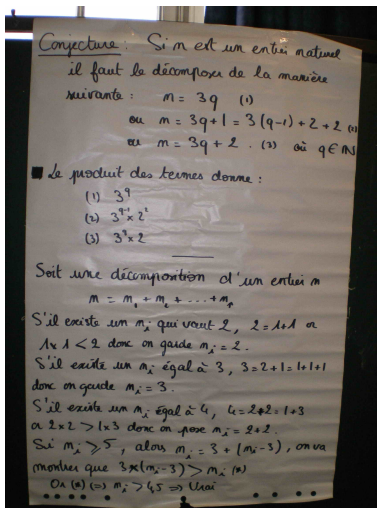 Conjecture : Si n est un entier naturel
il faut le décomposer de la manière
suivante : n = 3q (1)
ou n = 3q + 1 = 3(q-1) + 2 + 2 (2)
ou n = 3q + 2 . (3) où q ∈ ℕ
■ Le produit des termes donne :
(1) 3^q
(2) 3^(q-1) × 2^2
(3) 3^q × 2
Soit une décomposition d'un entier n
n = n₁ + n₂ + .... + nₚ
S'il existe un nᵢ qui vaut 2, 2 = 1+1 or
1×1 < 2 donc on garde nᵢ = 2.
S'il existe un nᵢ égal à 3, 3 = 2+1 = 1+1+1
donc on garde nᵢ = 3.
S'il existe un nᵢ égal à 4, 4 = 2+2 = 1+3
or 2×2 > 1×3 donc on pose nᵢ = 2+2.
Si nᵢ ⩾ 5, alors nᵢ = 3 + (nᵢ-3), on va
montrer que 3×(nᵢ-3) > nᵢ (*)
Or (*) ⟺ nᵢ > 4,5 ⟹ Vrai